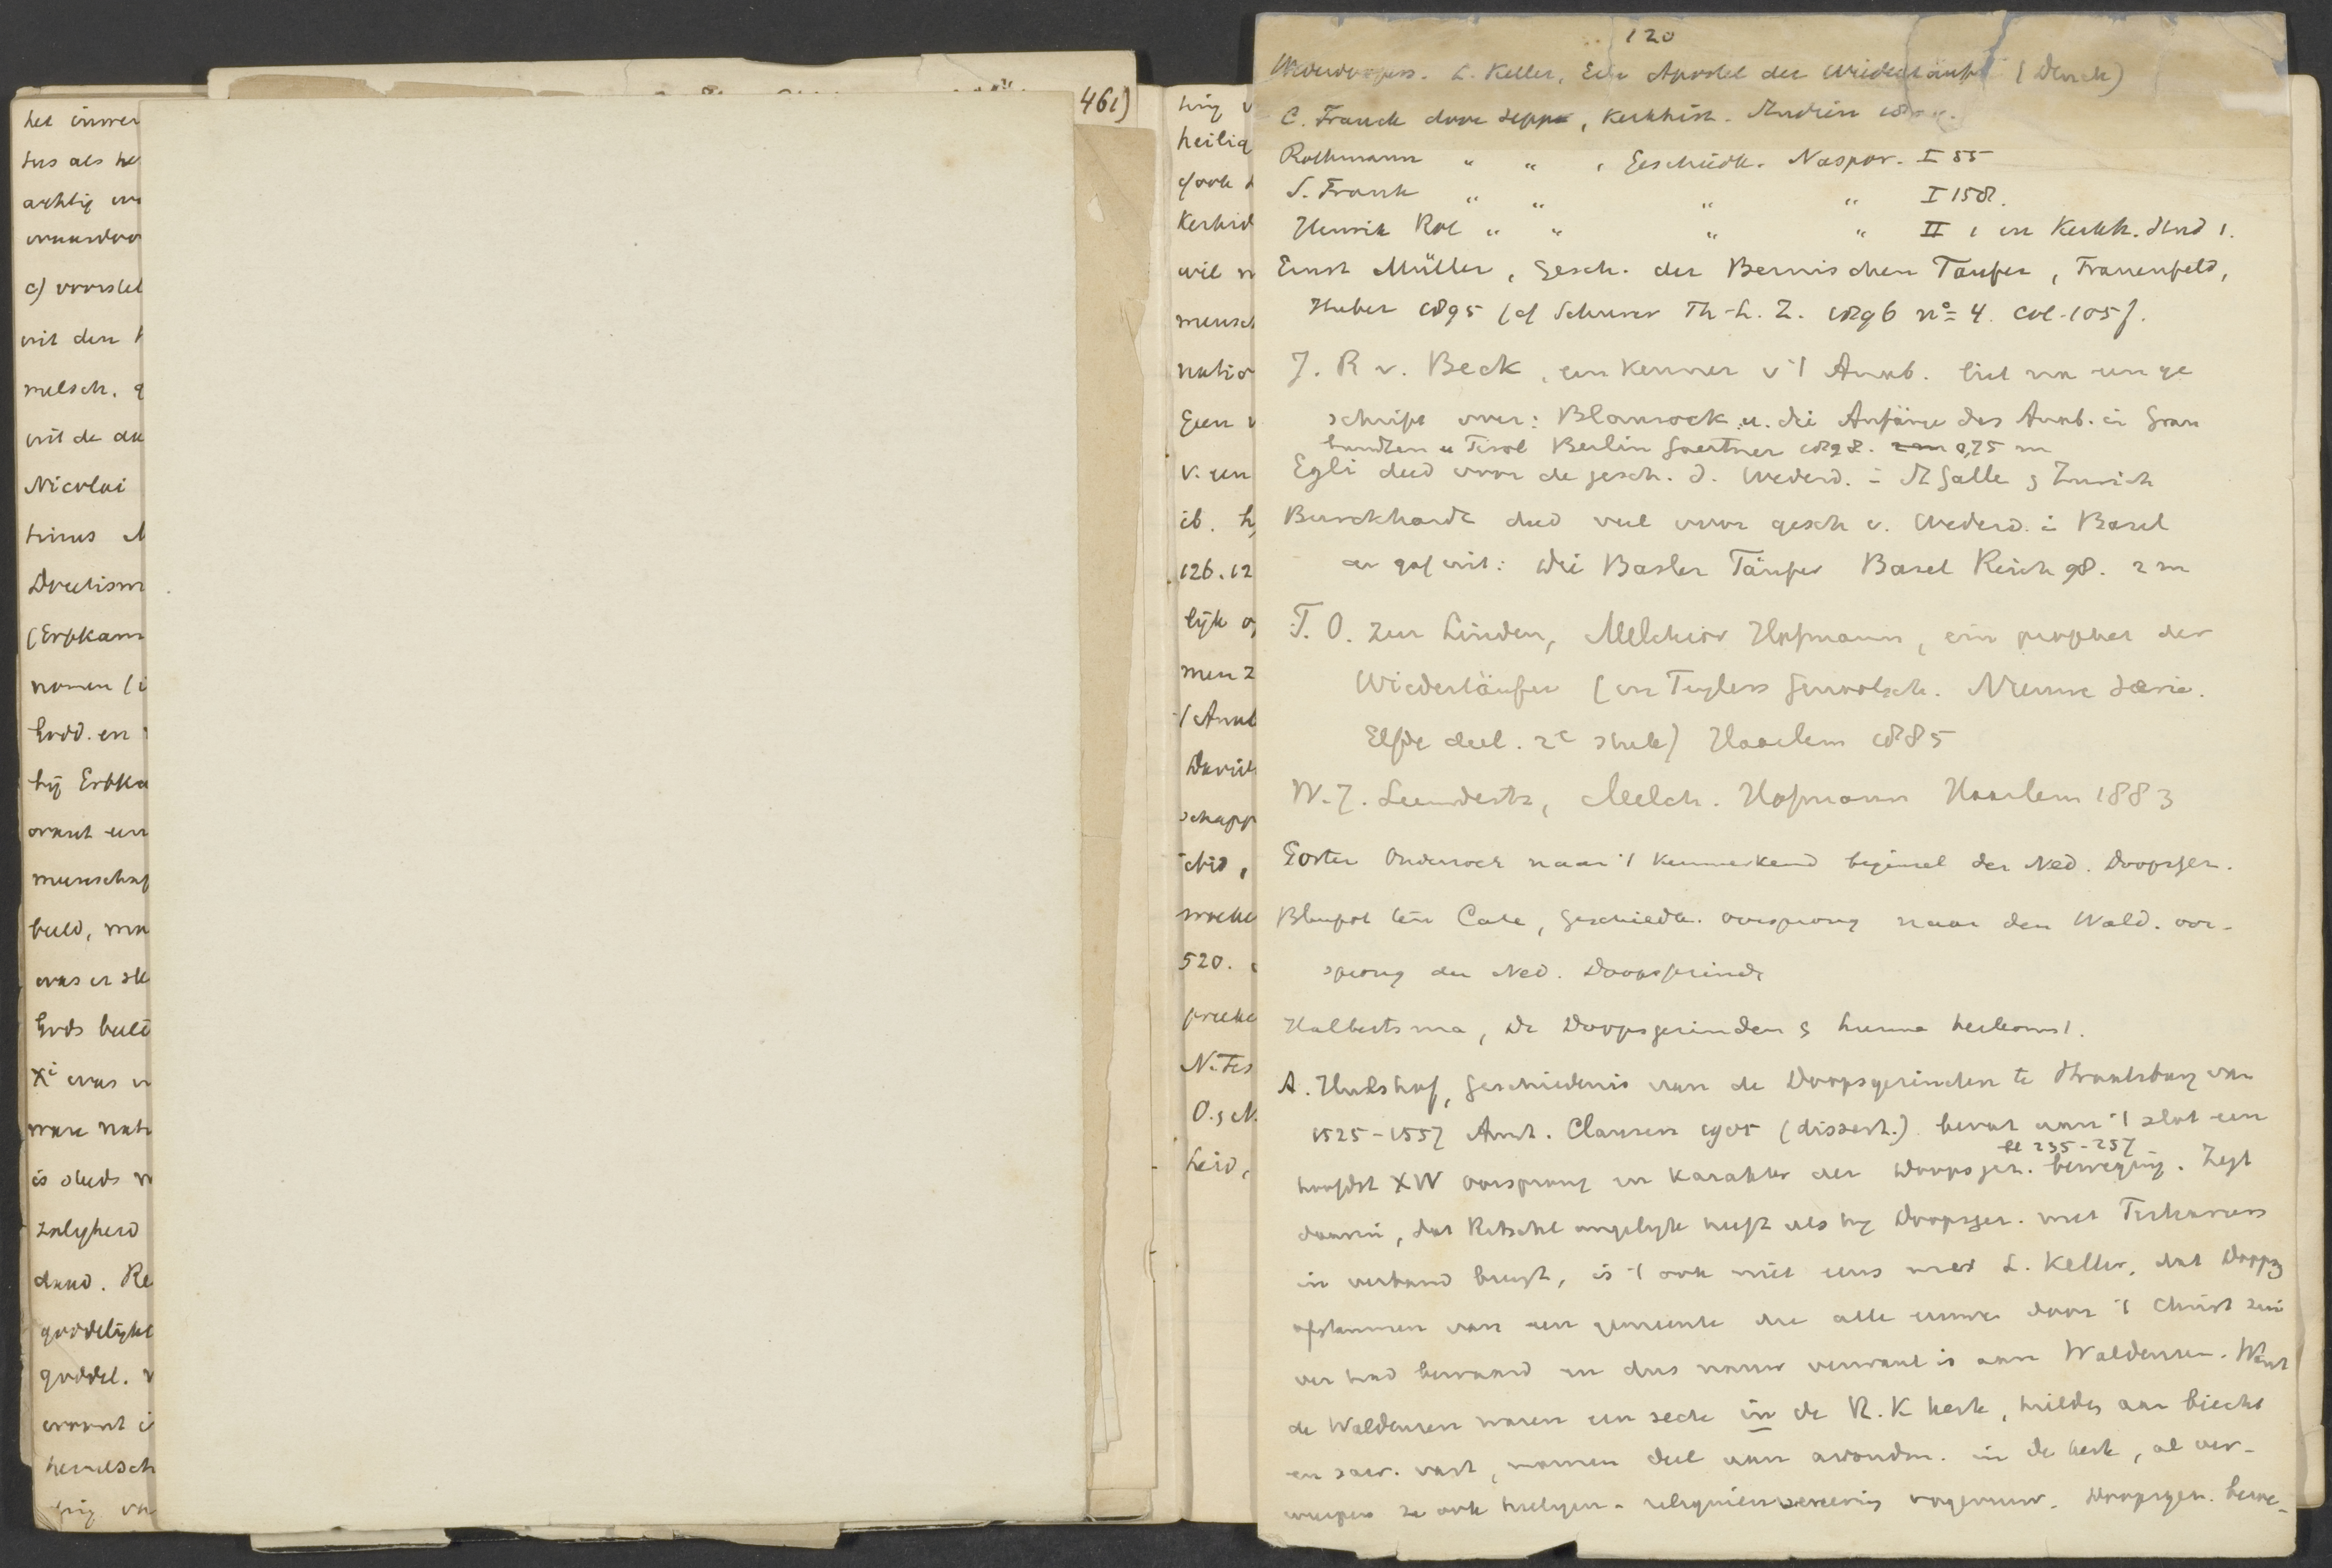 461)
het
tus als
achtig
c) voorstel
uit den
melsch.
uit de
Nicolai
trinus
Doctism
(Erbkam
namen
Godd. en
hij Erbka
want een
menschap
beeld,
was er
Gods beeld
Xi was
ware natu
is
zaligheid
daad. Re
goddelijke
goddel.
want
hemelsch
heilig
(ook
Kerkid
wil
mensch
natio
Geen
v. een
ib.
126. 12
lijk
men
Anab
David
schapp
520.
N. Tes
O. & N.
heid,
120
Wederdoopers. L. Keller, Ein Apostel der Wiedertäufer (Denck)
C. Franck door Sepp, Kerkhist. Studien
Rothmann " " , Geschiedk. Naspor. I 55
S. Frank " " " " I 158.
Henrik Rol " " " " II 1 en Kerkh. Stud 1.
Ernst Müller, Gesch. der Bernischen Taufer, Frauenfeld,
Huber 1895 (cf Schurer Th-L. Z. 1896 no 4. col. 105).
J. R v. Beck, een kenner v 't Anab. liet na een ge
schrift over: Blaurock u. die Anfänge des Anab. in Grau
bundten u Tirol Berlin Gaertner 1898. 0,75 m
Egli deed voor de gesch. d. Wederd. in St Galle & Zurich
Burckhardt deed veel voor gesch v. Wederd. in Basel
en gaf uit: Die Basler Täufer Basel Reich 98. 2 m
F. O. zur Linden, Melchior Hofmann, ein prophet der
Wiedertäufer (in Teylers Genootsch. Nieuwe Serie.
Elfde deel. 2e stuk) Haarlem 1885
W. J. Leendertz, Melch. Hofmann Haarlem 1883
Gorter Onderzoek naar 't kenmerkend beginsel der Ned. Doopsgez.
Blaupot ten Cate, Geschiedk. oorsprong naar den Wald. oor-
sprong der Ned. Doopsgezinde
Halbertsma, De Doopsgezinden & hunne herkomst.
A. Hulshof, Geschiedenis van de Doopsgezinden te Straatsburg van
1525-1557 Amst. Clausen 1905 (dissert.) bevat aan 't slot een
bl 235-257
hoofdst XIV oorsprong en karakter der Doopsgez. beweging. Zegt
daarin, dat Ritschl ongelijk heeft als hij Doopsgez. met Tertiariers
in verband brengt, is 't ook niet eens met L. Keller, dat Doopsg
afstammen van een gemeente die alle eeuwen door 't Christ zui
ver had bewaard en dus nauw verwant is aan Waldenzen. Want
de Waldenzen waren een secte in de R. K kerk, hielden aan biecht
en sacr. vast, namen deel aan avondm. in de kerk, al ver-
wierpen ze ook heiligen- reliquienvereering vagevuur. Doopsgez. bewe-